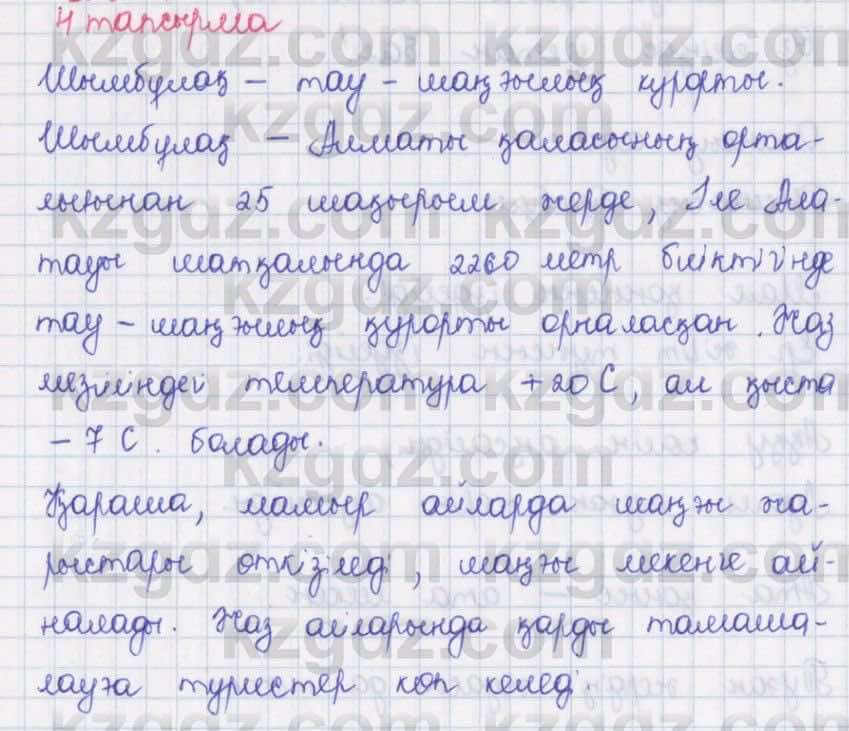 4 тапсырма
Шымбұлақ – тау – шаңғылық курорты.
Шымбұлақ – Алматы қаласының орта-
лығынан 25 шақырым жерде, Іле Ала-
тауы шатқалында 2260 метр биіктігінде
тау – шаңғылық құрорты орналасқан. Жаз
мезгіліндегі температура +20 С, ал қыста
– 7 С. болады.
Қараша, мамыр айларда шаңғы жа-
рыстары өткізіледі, шаңғы мекенге ай-
налады. Жаз айларында қарды тамаша-
лауға туристер көп келеді